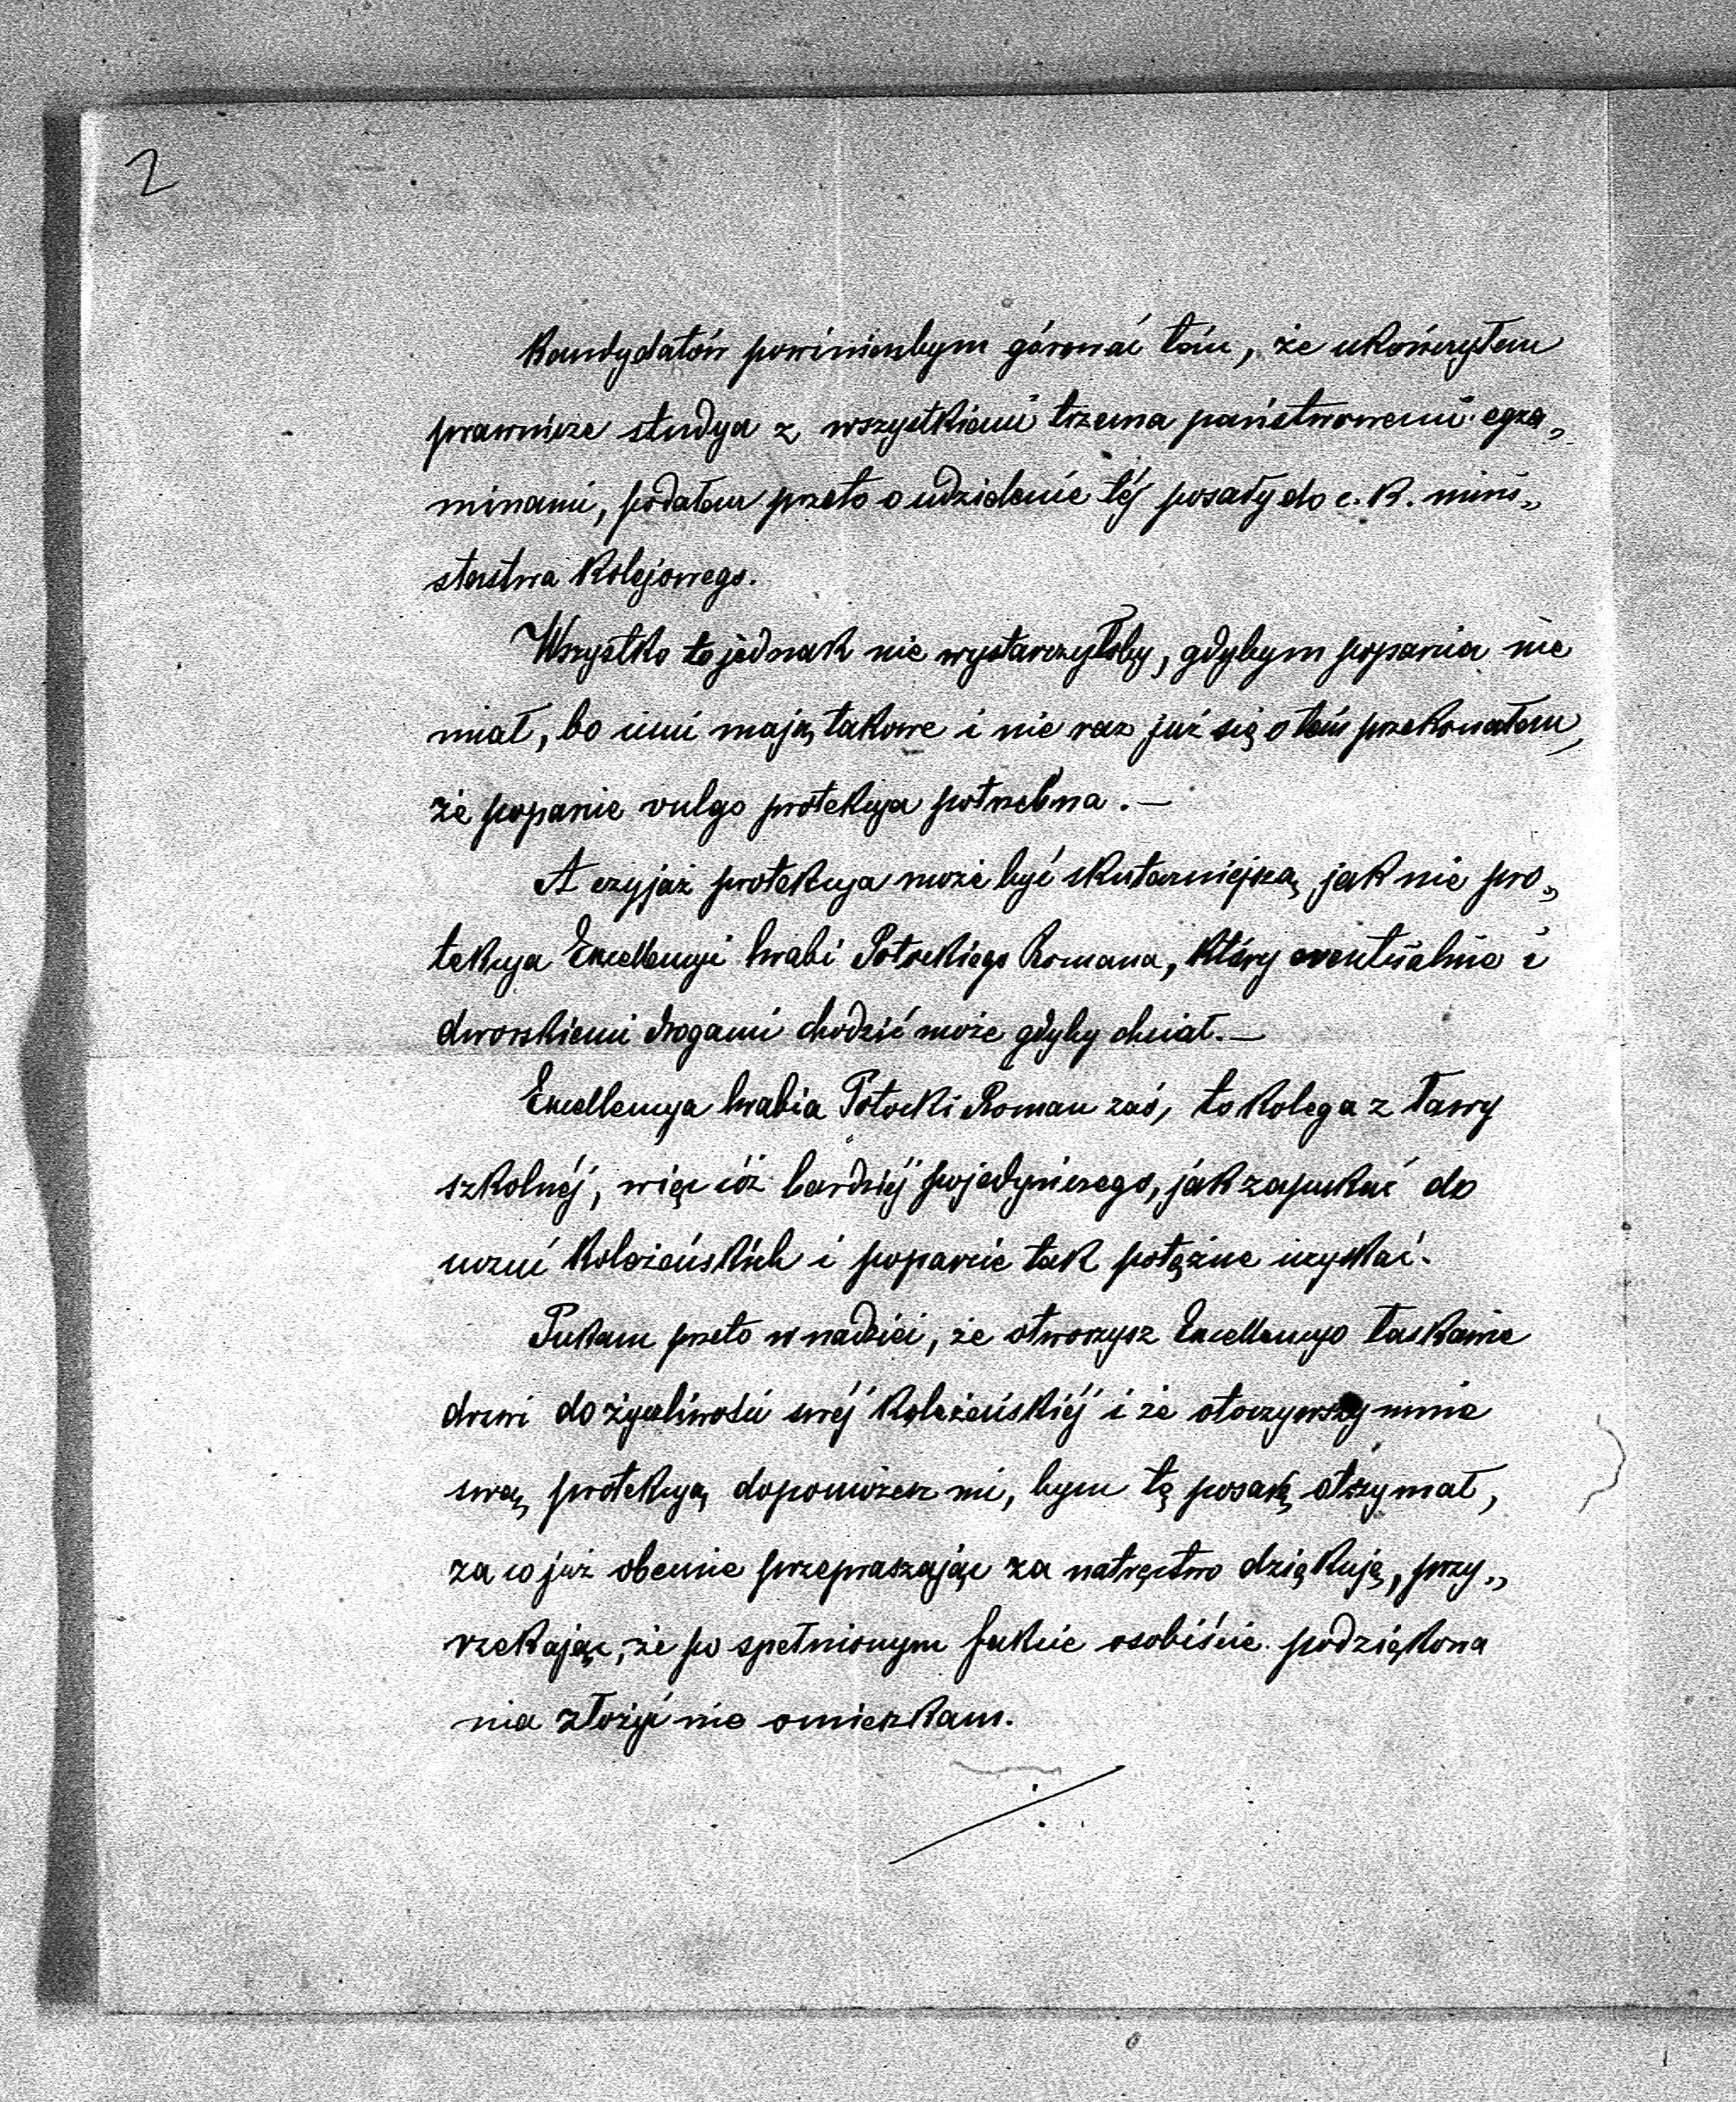 2
kandydatów powinienbym górować tém, że ukończyłem
prawnicze studya z wszystkiemi trzema państwowemi egza„
minami, podałem przeto o udzielenie téj posady do c. k. mini„
sterstwa kolejowego.
Wszystko to jednak nie wystarczyłoby, gdybym poparcia nie
miał, bo inni mają takowe i nie raz już się o tém przekonałem,
że poparcie vulgo protekcya potrzebna. —
A czyjaż protekcya może być skuteczniejszą, jak nie pro„
tekcya Excellencyi hrabi Potockiego Romana, który eventualnie i
dworskiemi drogami chodzić może gdyby chciał. —
Excellencya hrabia Potocki Roman zaś, to kolega z ławy
szkolnéj, więc cóż bardziéj pojedyńczego, jak zapukać do
uczuć koleżeńskich i poparcie tak potężne uzyskać.
Pukam przeto w nadziei, że otworzysz Excellencyo łaskawie
drzwi do życzliwości swéj koleżeńskiéj i że otoczywszy mnie
swą protekcyą dopomożesz mi, bym tę posadę otrzymał,
za co już obecnie przepraszając za natręctwo dziękuję, przy„
rzekając, że po spełnionym fakcie osobiście podziękowa
nia złożyć nie omieszkam.